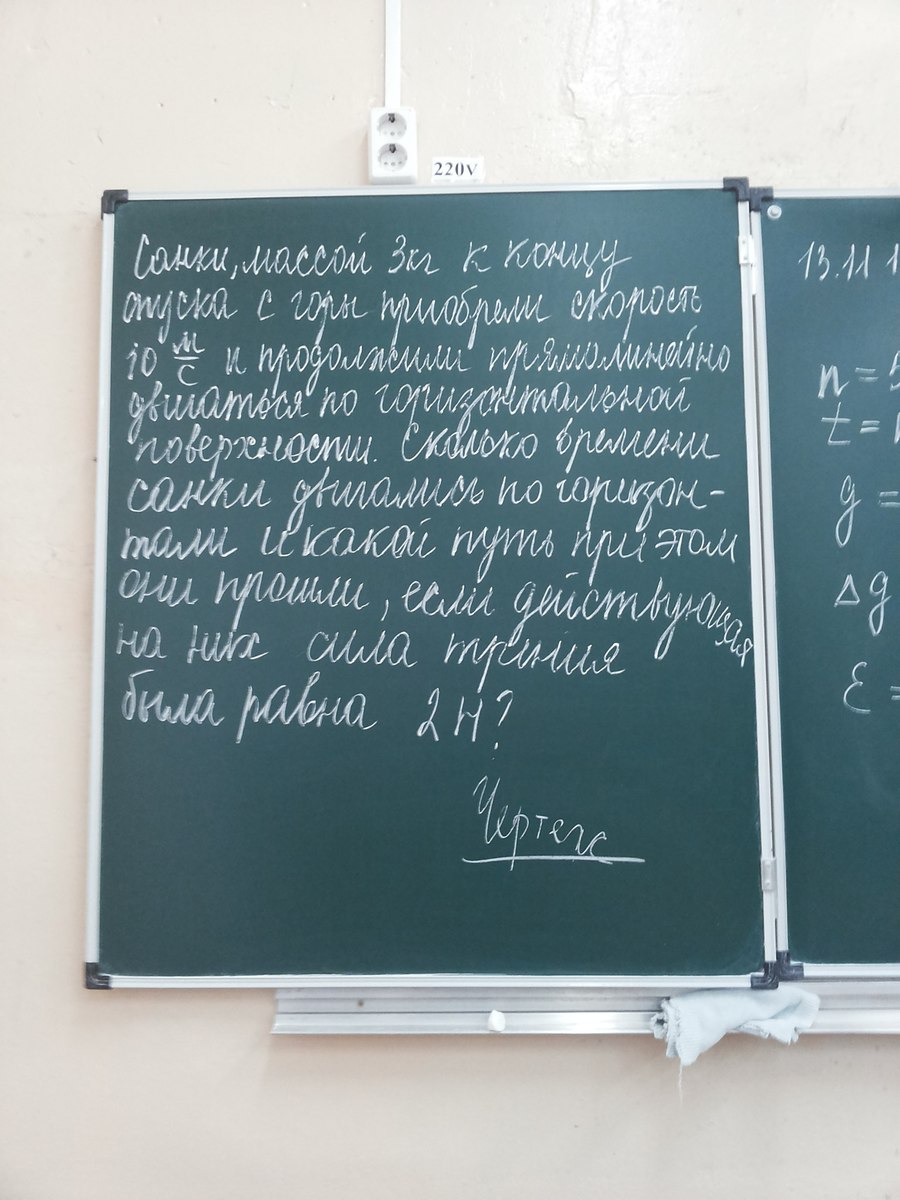 220V
Санки, массой 3кг к концу
спуска с горы приобрели скорость
10 м/с и продолжили прямолинейно
двигаться по горизонтальной
поверхности. Сколько времени
санки двигались по горизон-
тали и какой путь при этом
они прошли, если действующая
на них сила трения
была равна 2 Н?
Чертеж
13.11 1
n = 5
t = 1
g =
Δg
ε =